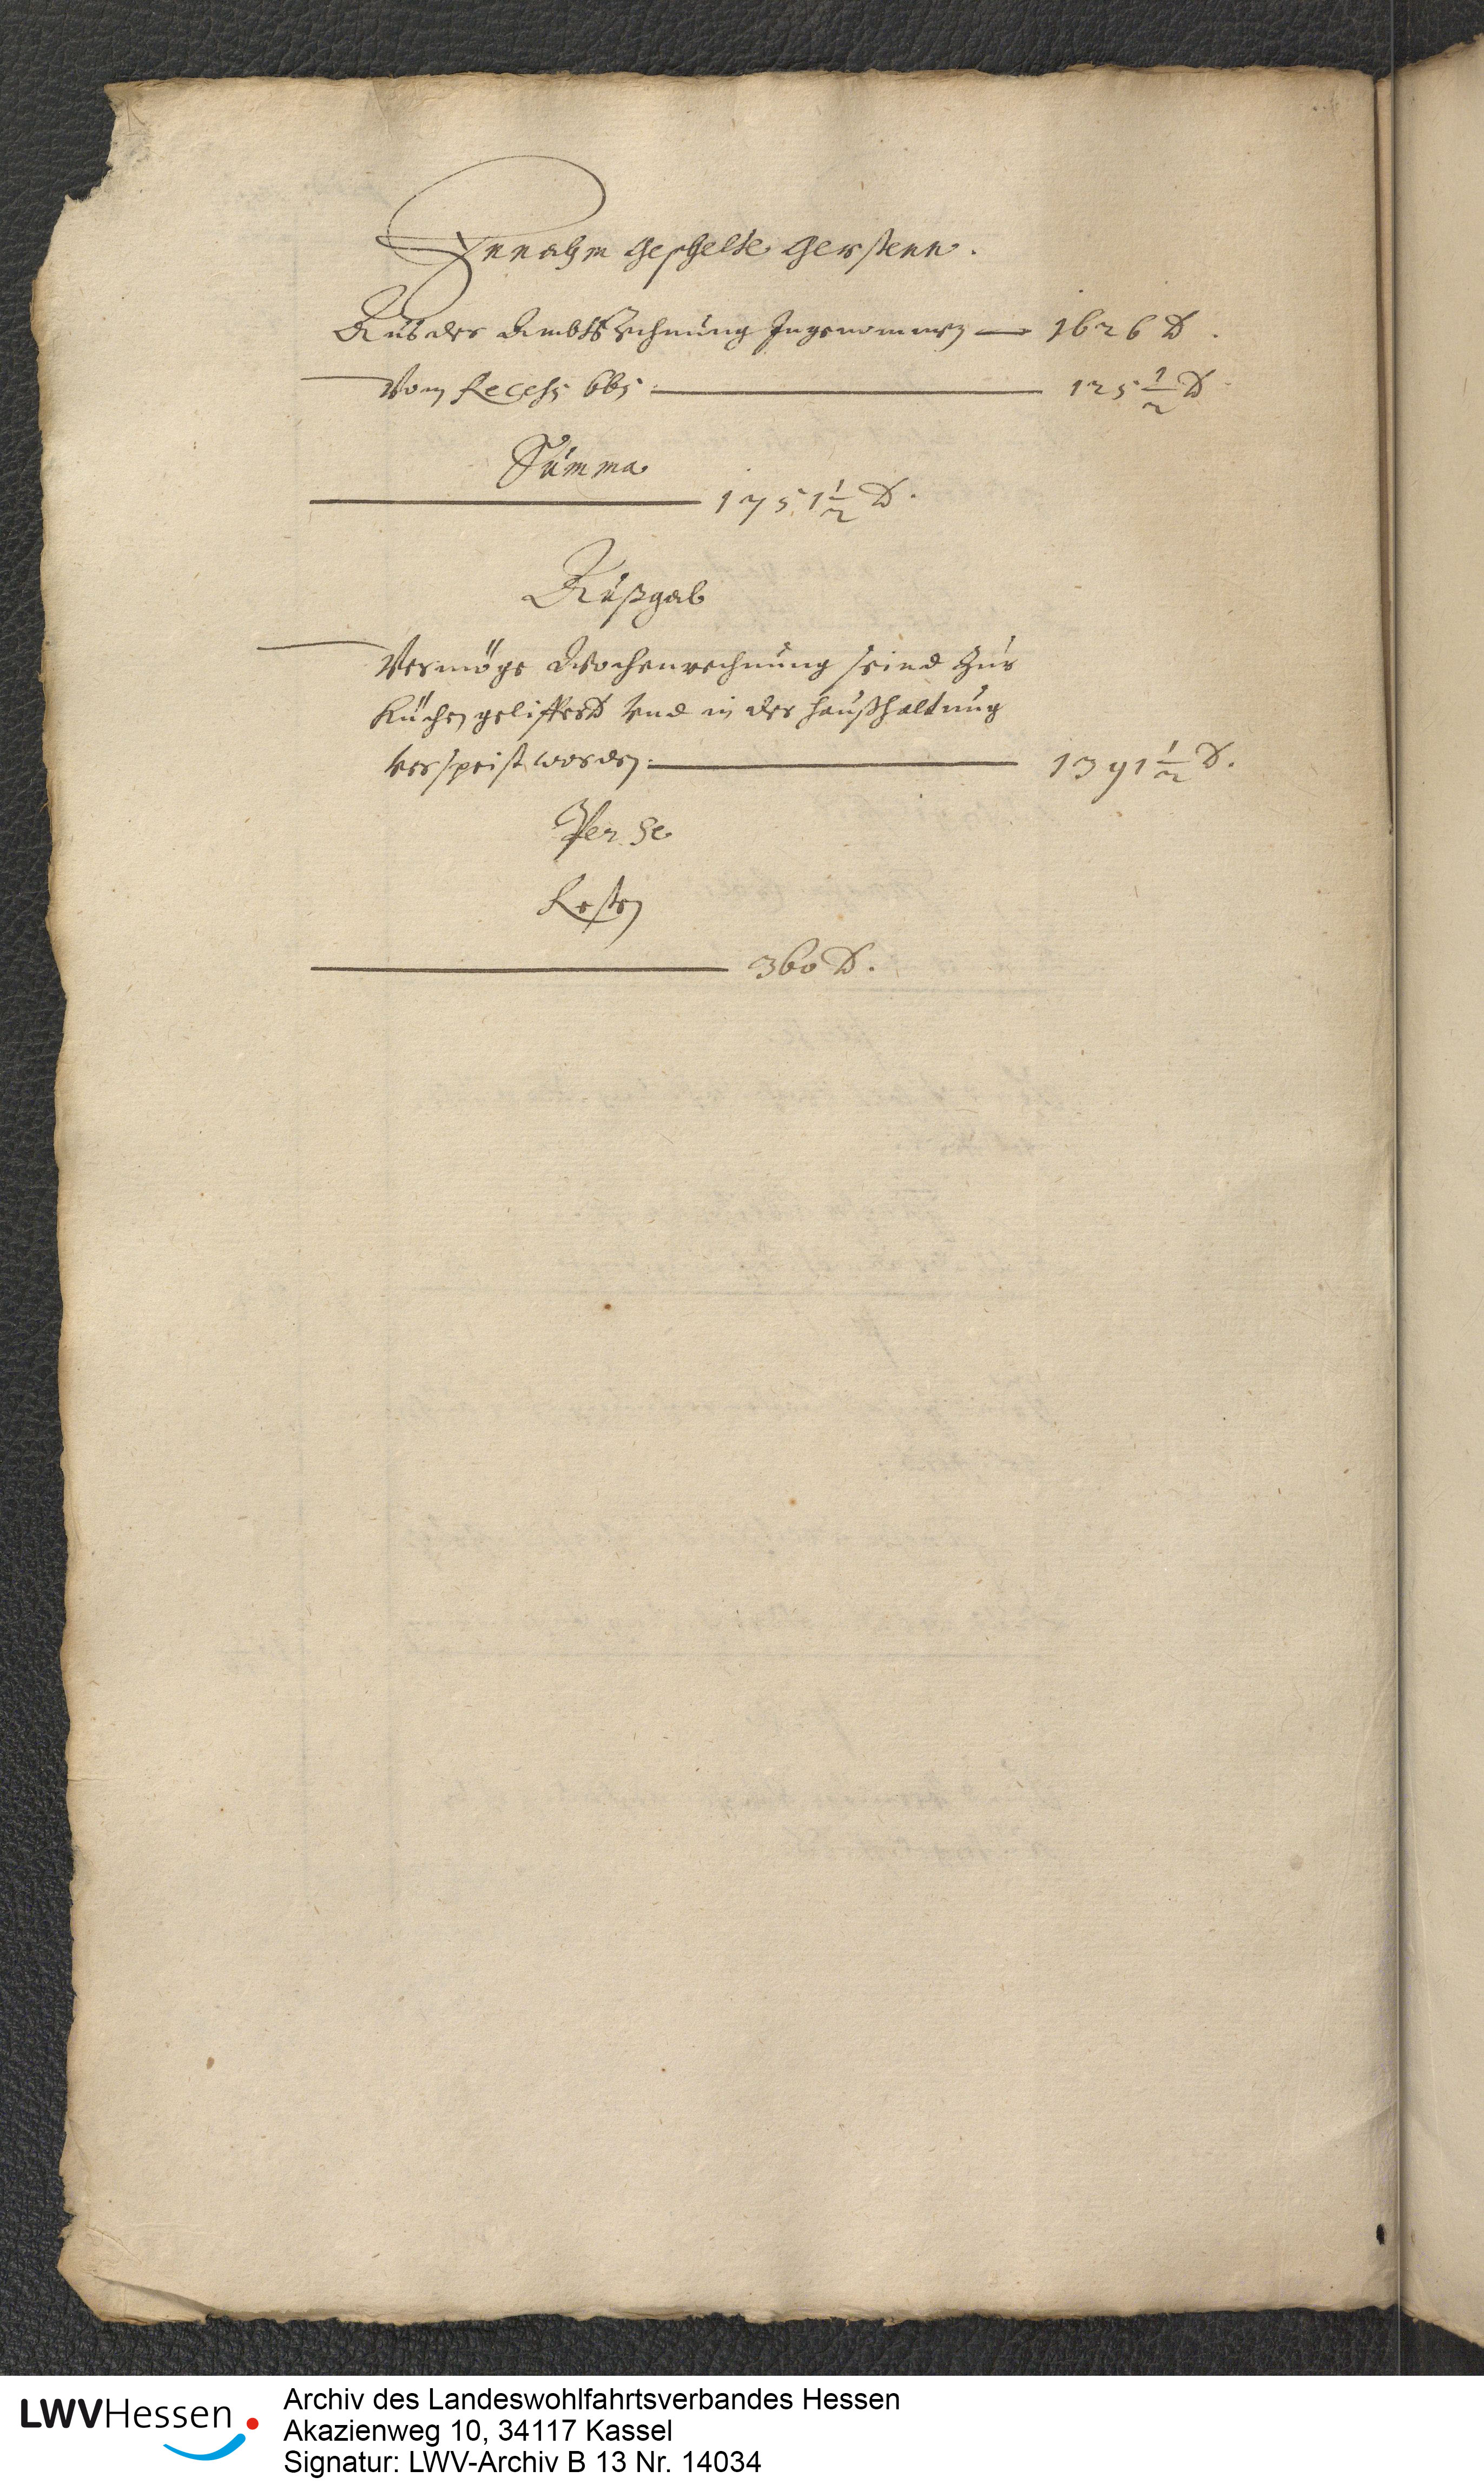 Innahm Geschelte Gersten.
Auß der Ambtsrechnung Ingenommen — 1626 ℔.
Vom Recess 665. — 125 1/2 ℔
Summa
— 1751 1/2 ℔.
Außgab
Vermöge Wochenrechnung seind zur
Küchen geliffert vnd in der haußhaltung
verspeist worden. — 1391 1/2 ℔.
Per se
Resten
— 360 ℔.
LWVHessen
Archiv des Landeswohlfahrtsverbandes Hessen
Akazienweg 10, 34117 Kassel
Signatur: LWV-Archiv B 13 Nr. 14034